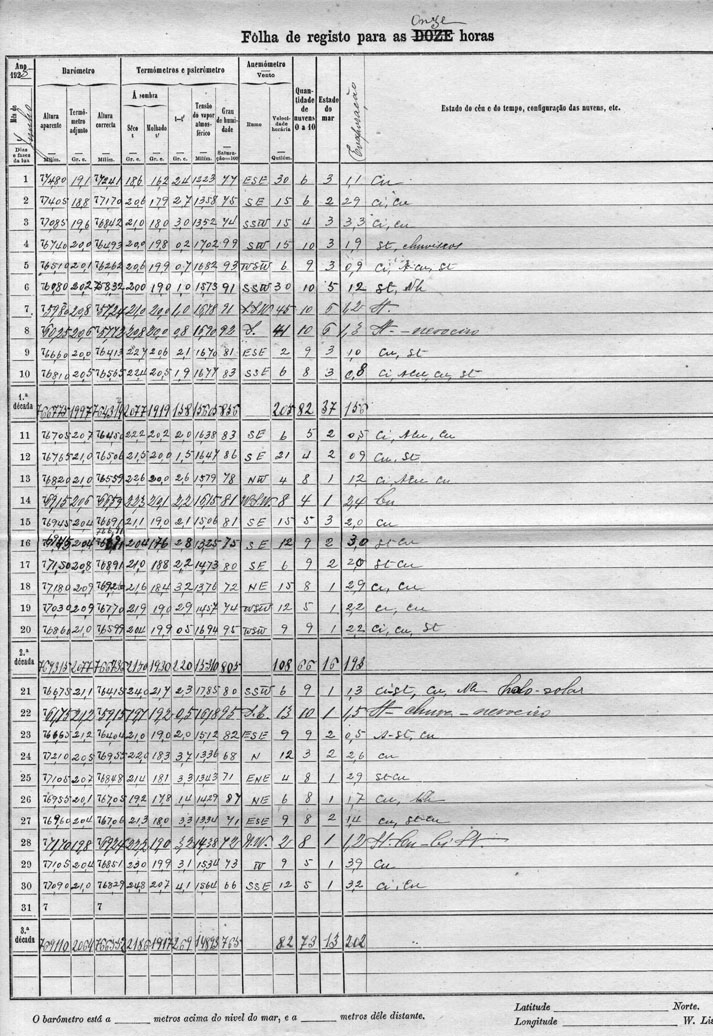 Onze
Folha de registo para as DOZE horas
Ano 192
Barómetro Termómetros e psicrómetro Anemómetro Quantidade de nuvens 0 a 10 Estado do mar Evaporação Estado do céu e do tempo, configuração das nuvens, etc.
Mês de Junho
Á sombra Vento
Altura aparente Termómetro adjunto Altura correcta Sêco t Molhado t' t-t' Tensão do vapor atmosférico Grau de humidade Rumo Velocidade horária
Dias e fases da lua
Milím. Gr. c. Milím. Gr. c. Gr. c. Gr. c. Milím. Saturação=100 Quilóm.
1 77480 19,1 77241 18,6 16,2 2,4 12,23 77 ESE 30 6 3 1,1 Cu
2 77405 18,8 77170 20,6 17,9 2,7 13,58 75 SE 15 6 2 2,9 Ci, Cu
3 77085 19,6 76842 21,0 18,0 3,0 13,52 74 SSW 15 4 3 3,3 Ci, Cu
4 76740 20,0 76493 20,0 19,8 0,2 17,02 99 SW 15 10 3 1,9 St, chuviscos
5 76510 20,1 76262 20,6 19,9 0,7 16,82 93 WSW 6 9 3 0,9 Ci, A-cu, St
6 20,0 19,0 1,0 15,73 91 SSW 30 10 5 1,2 St, Nb
7 21,0 20,0 1,0 91 45 10 6 St.
8 20,8 20,0 0,8 S. 41 10 6 1,3 St - nevoeiro
9 76660 20,0 76413 22,7 20,6 2,1 16,70 81 ESE 2 9 3 1,0 Cu, St
10 76810 20,5 76565 22,4 20,5 1,9 16,77 83 SSE 6 8 3 0,8 Ci, A-cu, cu, St
1.ª década 207 82 37
11 76705 20,7 76456 22,2 20,2 2,0 16,38 83 SE 6 5 2 0,5 Ci, A-cu, Cu
12 76765 21,0 76506 21,5 20,0 1,5 16,47 86 SE 21 4 2 0,9 Cu, St
13 76820 21,0 76559 22,6 20,0 2,6 15,79 78 NW 4 8 1 1,2 Ci, A-cu, Cu
14 2,2 81 WSW 8 4 1 2,4 Cu
15 76945 20,4 76691 21,1 19,0 2,1 15,06 81 SE 15 5 3 2,0 Cu
16 20,4 20,4 17,6 2,8 13,25 75 SE 12 9 2 3,0 St-Cu
17 77150 20,8 76891 21,0 18,8 2,2 14,73 80 SE 6 9 2 St-Cu
18 77180 20,9 76920 21,6 18,4 3,2 13,76 72 NE 15 8 1 2,9 Ci, Cu
19 77030 20,9 76770 21,9 19,0 2,9 14,57 74 WSW 12 5 1 2,2 Ci, Cu
20 76860 21,0 76599 20,4 19,9 0,5 16,94 95 WSW 9 9 1 2,2 Ci, Cu, St
2.ª década 805 108 66
21 76675 21,1 76415 24,0 21,7 2,3 17,85 80 SSW 6 9 1 1,3 Ci-St, Cu, Nb halo-solar
22 21,2 19,7 19,2 0,5 95 S.E. 13 10 1 1,5 St - chuva - nevoeiro
23 76665 21,2 76404 21,0 19,0 2,0 15,12 82 ESE 9 9 2 0,5 A-St, Cu
24 77210 20,5 76955 22,0 18,3 3,7 13,36 68 N 12 3 2 2,6 Cu
25 77105 20,7 76848 21,4 18,1 3,3 13,43 71 ENE 4 8 1 2,9 St-Cu
26 76955 20,1 76705 19,2 17,8 1,4 14,29 87 NE 6 8 1 1,7 Cu, Nb
27 76960 20,4 76706 21,3 18,0 3,3 13,34 71 ESE 9 8 2 1,4 Cu, St-Cu
28 19,8 22,2 19,0 3,2 72 N.W. 2 8 1 1,2 St-Cu-Ci-St.
29 77105 20,4 76851 23,0 19,9 3,1 15,34 73 W 9 5 1 3,9 Cu
30 77090 21,0 76829 24,8 20,7 4,1 15,64 66 SSE 12 5 1 3,2 Ci, Cu
31 7 7
3.ª década 82 73 13 20,2
O barómetro está a ______ metros acima do nivel do mar, e a ______ metros dêle distante.
Latitude ______ Norte.
Longitude ______ W. Lis